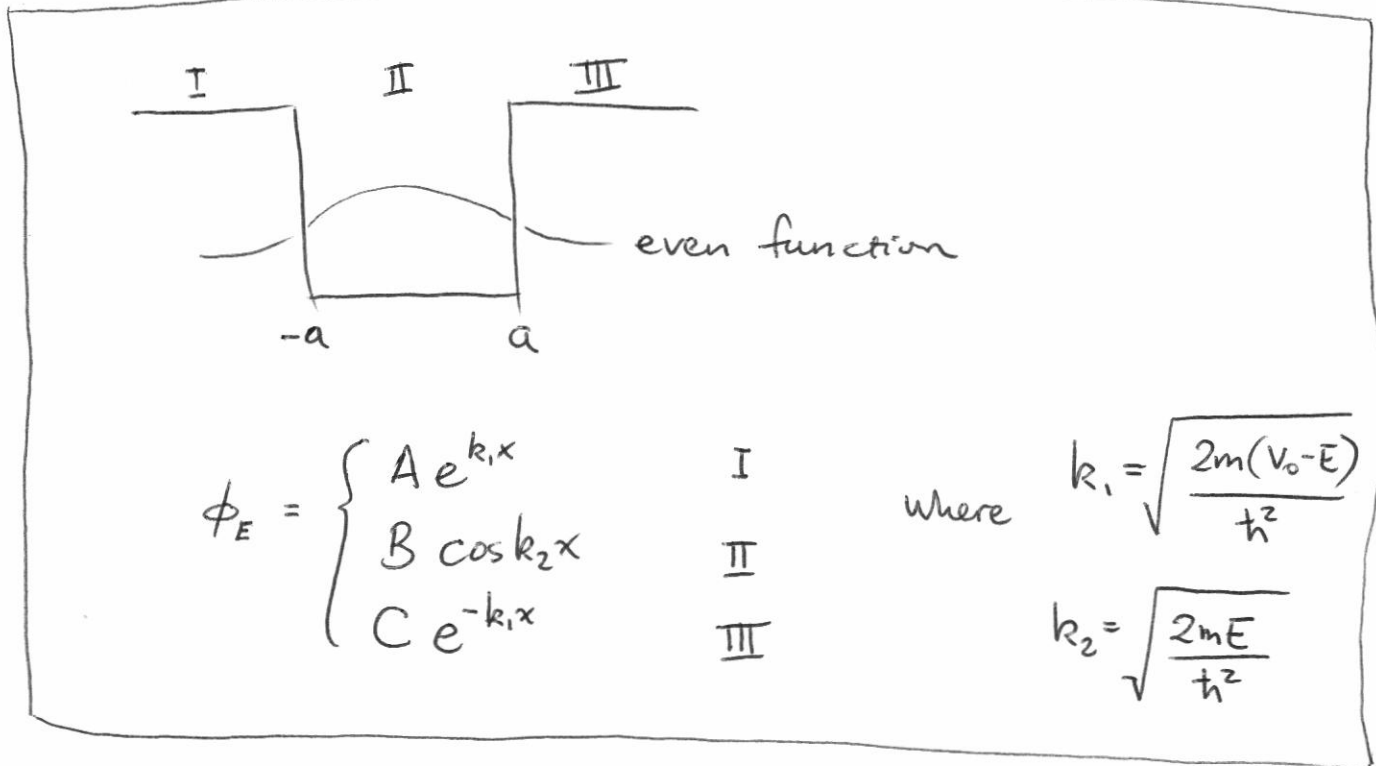 I II III
even function
-a a
ϕ_E = { A e^{k₁x} I
B cos k₂x II
C e^{-k₁x} III
where k₁ = √(2m(V₀-E)/ħ²)
k₂ = √(2mE/ħ²)